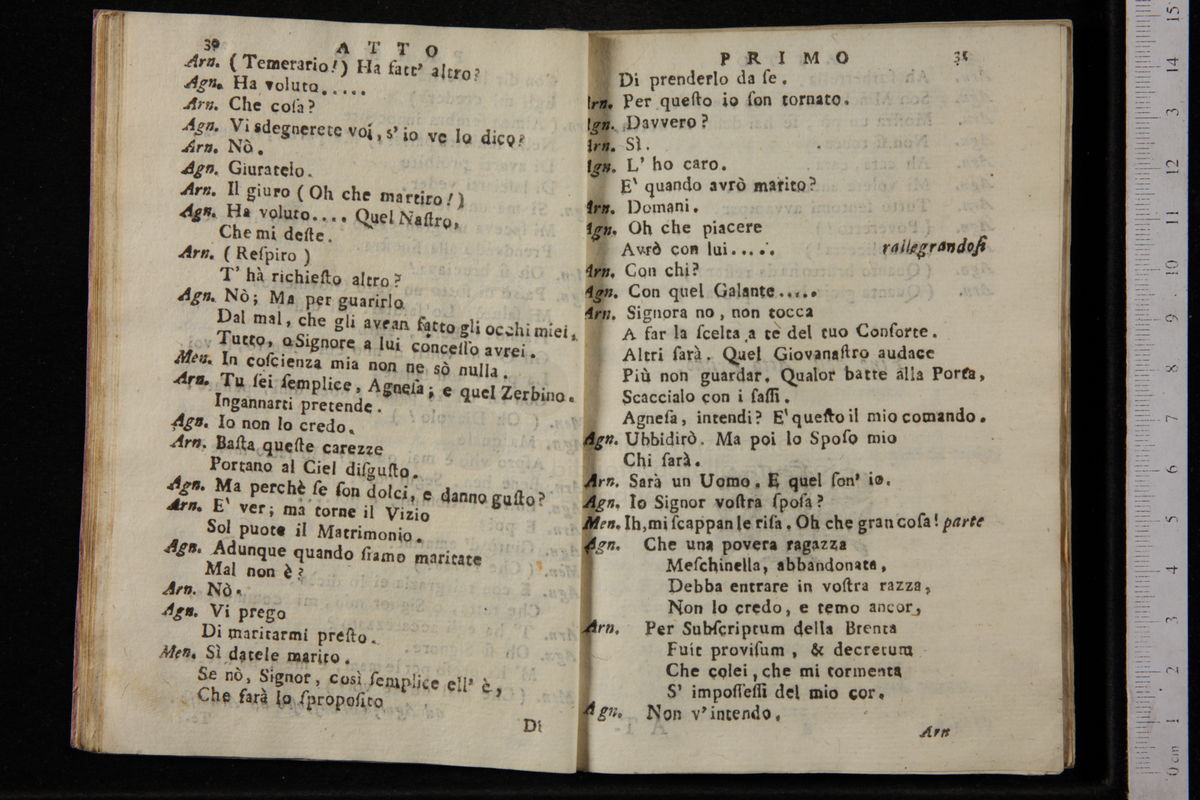 30
ATTO
Arn. (Temerario!) Ha fatt' altro?
Agn. Ha voluto.....
Arn. Che coſa?
Agn. Vi sdegnerete voi, s' io ve lo dico?
Arn. Nò.
Agn. Giuratelo.
Arn. Il giuro (Oh che martiro!)
Agn. Ha voluto.... Quel Naſtro,
Che mi deſte.
Arn. (Reſpiro)
T' hà richieſto altro?
Agn. Nò; Ma per guarirlo
Dal mal, che gli avean fatto gli occhi miei,
Tutto, o Signore a lui conceſſo avrei.
Men. In coſcienza mia non ne sò nulla.
Arn. Tu ſei ſemplice, Agneſa; e quel Zerbino
Ingannarti pretende.
Agn. Io non lo credo.
Arn. Baſta queſte carezze
Portano al Ciel diſguſto.
Agn. Ma perchè ſe ſon dolci, e danno guſto?
Arn. E' ver; ma torne il Vizio
Sol puote il Matrimonio.
Agn. Adunque quando ſiamo maritate
Mal non è?
Arn. Nò.
Agn. Vi prego
Di maritarmi preſto.
Men. Sì datele marito.
Se nò, Signor, così ſemplice ell' è,
Che farà lo ſpropoſito
Di
PRIMO
35
Di prenderlo da ſe.
Arn. Per queſto io ſon tornato.
Agn. Davvero?
Arn. Sì.
Agn. L' ho caro.
E' quando avrò marito?
Arn. Domani.
Agn. Oh che piacere
Avrò con lui..... rallegrandoſi
Arn. Con chi?
Agn. Con quel Galante.....
Arn. Signora no, non tocca
A far la ſcelta a tè del tuo Conſorte.
Altri ſarà. Quel Giovanaſtro audace
Più non guardar. Qualor batte alla Porta,
Scaccialo con i ſaſſi.
Agneſa, intendi? E' queſto il mio comando.
Agn. Ubbidirò. Ma poi lo Spoſo mio
Chi ſarà.
Arn. Sarà un Uomo. E quel ſon' io.
Agn. Io Signor voſtra ſpoſa?
Men. Ih, mi ſcappan le riſa. Oh che gran coſa! parte
Agn. Che una povera ragazza
Meſchinella, abbandonata,
Debba entrare in voſtra razza,
Non lo credo, e temo ancor,
Arn. Per Subſcriptum della Brenta
Fuit proviſum, & decretum
Che colei, che mi tormenta
S' impoſſeſſi del mio cor.
Agn. Non v' intendo.
Arn